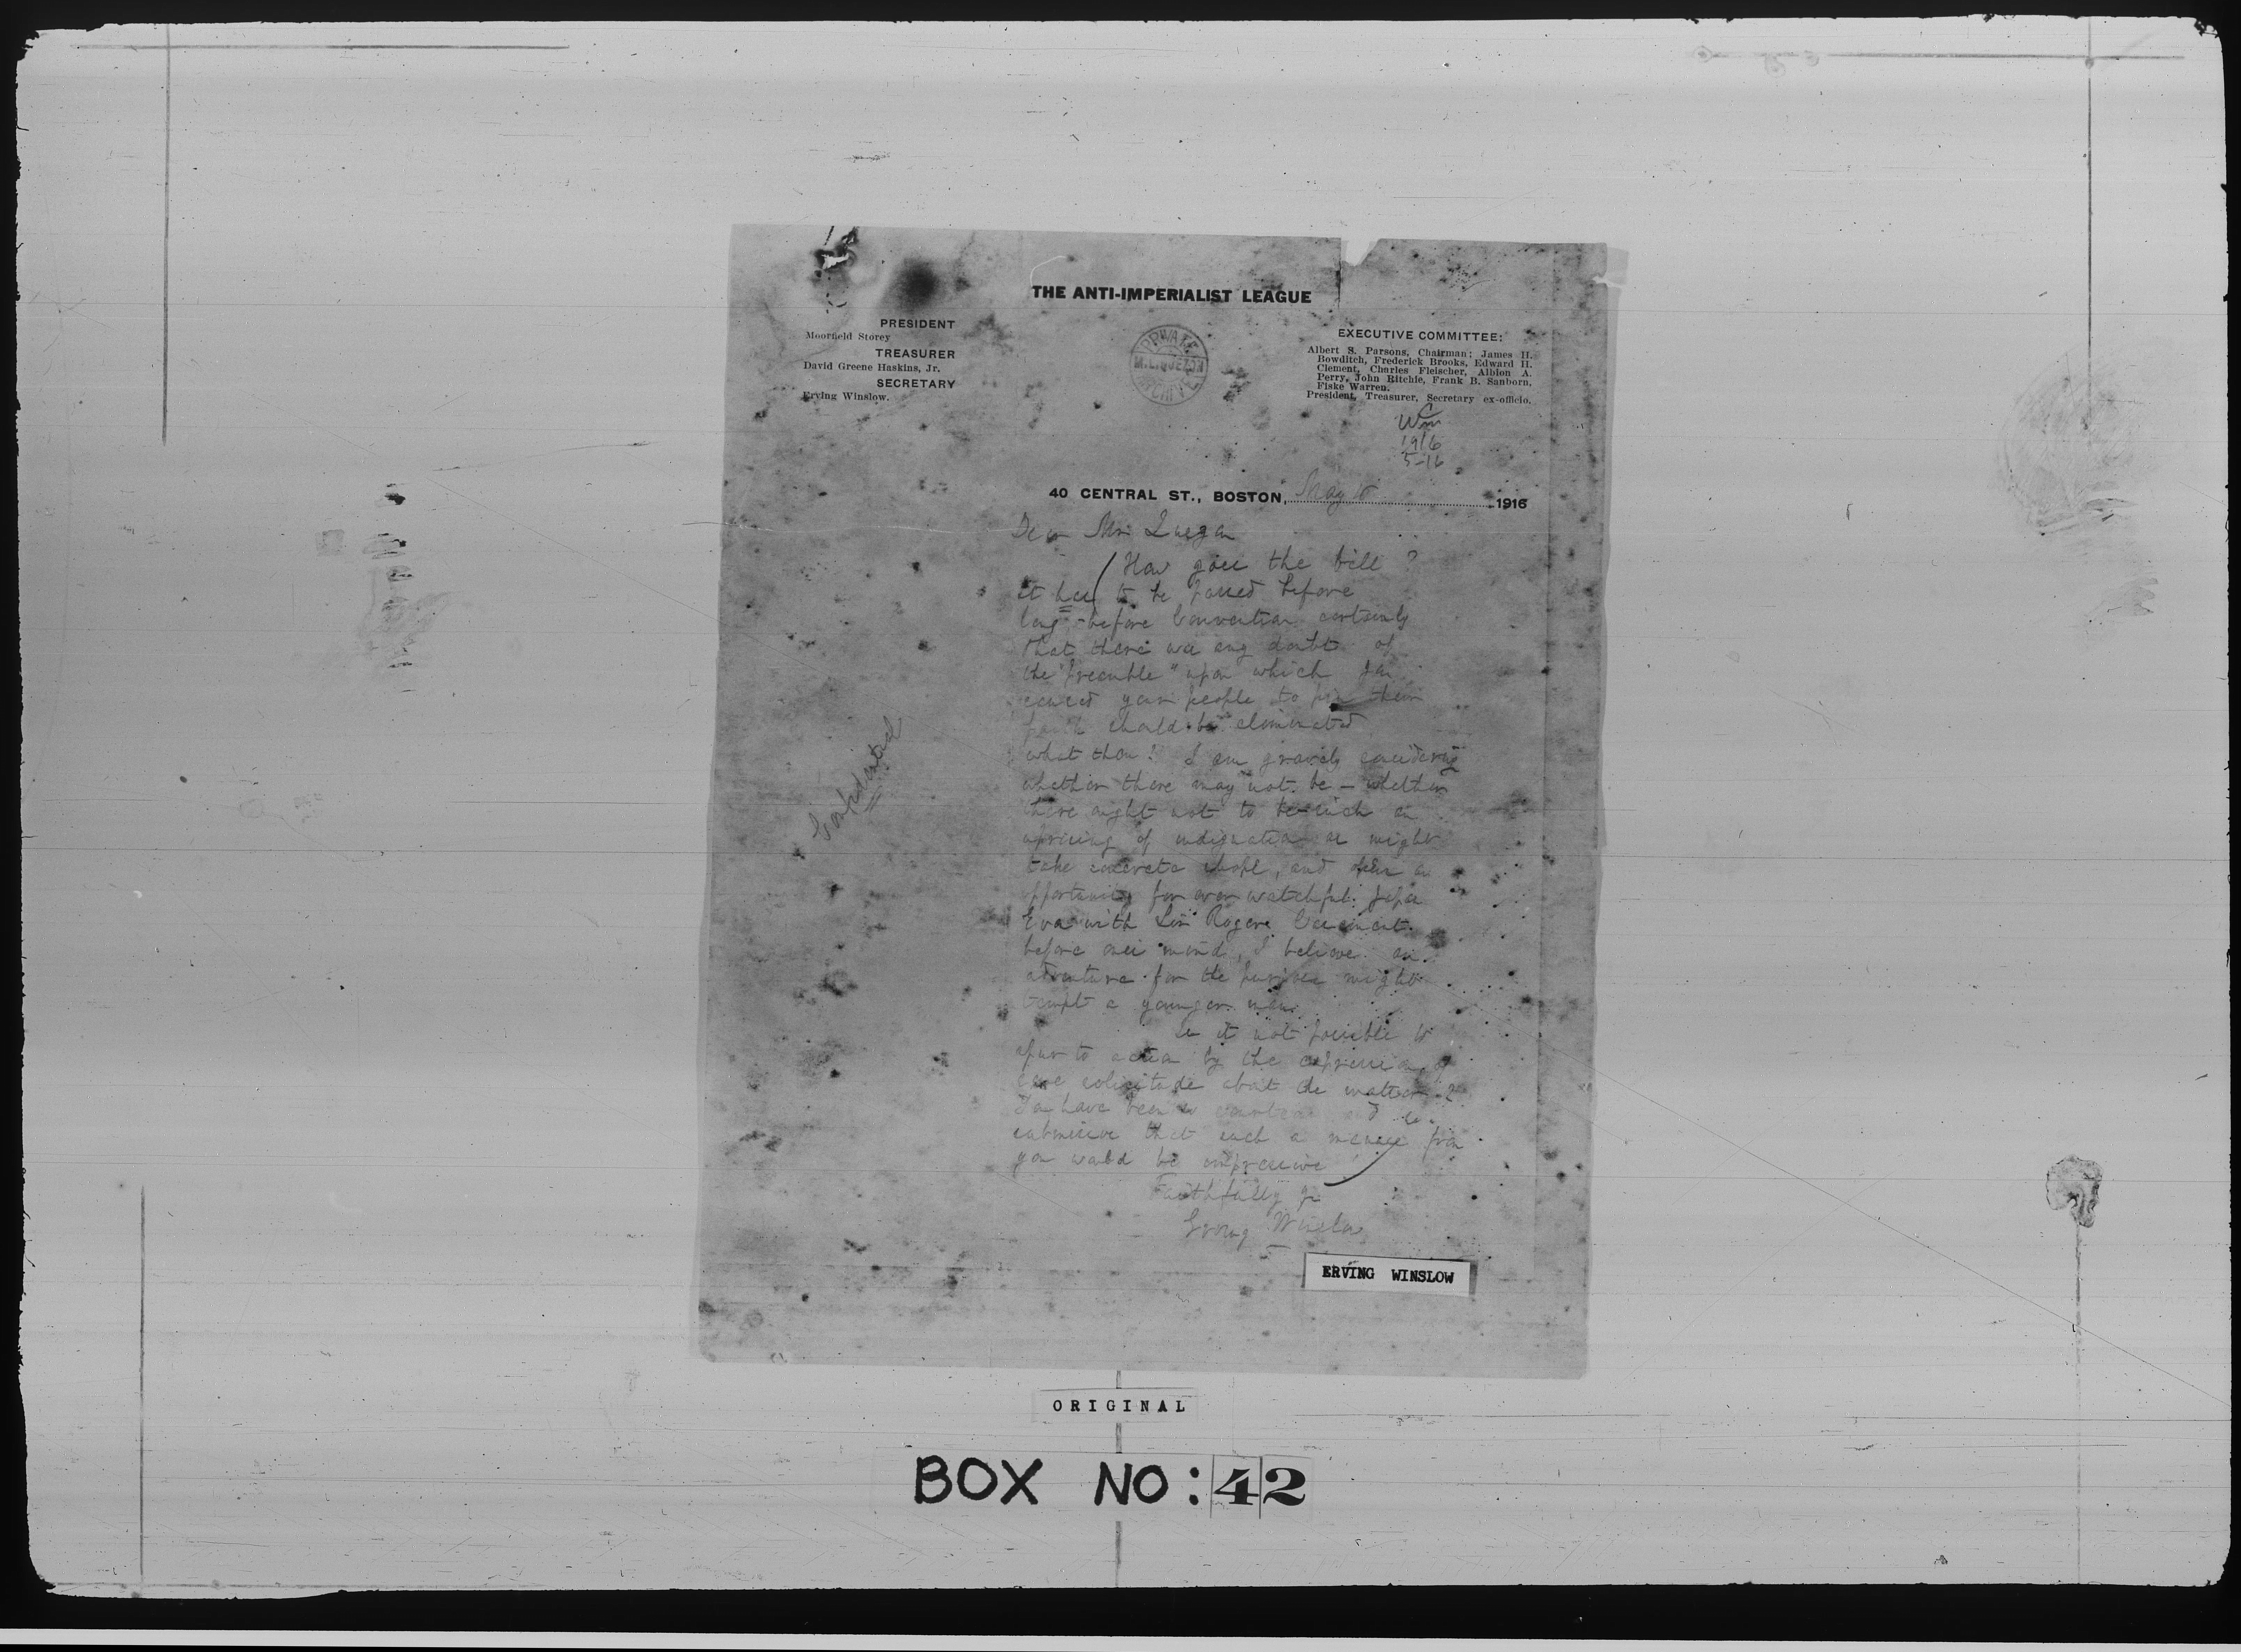 THE ANTI-IMPERIALIST LEAGUE
PRESIDENT
Moorfield Storey
TREASURER
David Greene Haskins, Jr.
SECRETARY
Erving Winslow.
PRIVATE
M.L. QUEZON
ARCHIVE
EXECUTIVE COMMITTEE:
Albert S. Parsons, Chairman; James H.
Bowditch, Frederick Brooks, Edward H.
Clement, Charles Fleischer, Albion A.
Perry, John Ritchie, Frank B. Sanborn,
Fiske Warren.
President, Treasurer, Secretary ex-officio.
1916
5-16
40 CENTRAL ST., BOSTON, May 1916
Dear Mr.
How goes the bill?
It has to be passed before
long - before Convention certainly
that there was any doubt of
the "preamble" upon which you
caused your people to pin their
faith should be eliminated
what then? I am gravely considering
whether there may not be - whether
there ought not to be such an
uprising of indignation as might
take concrete shape, and open an
opportunity for ever watchful Japan
Even with Sir Roger Casement
before one's mind, I believe an
adventure for the purpose might
tempt a younger man.
Is it not possible to
spur to action by the expression of
solicitude about the matter?
You have been so and so
submissive that such a message from
you would be impressive
Faithfully yrs
Erving Winslow
ERVING WINSLOW
ORIGINAL
BOX NO: 42